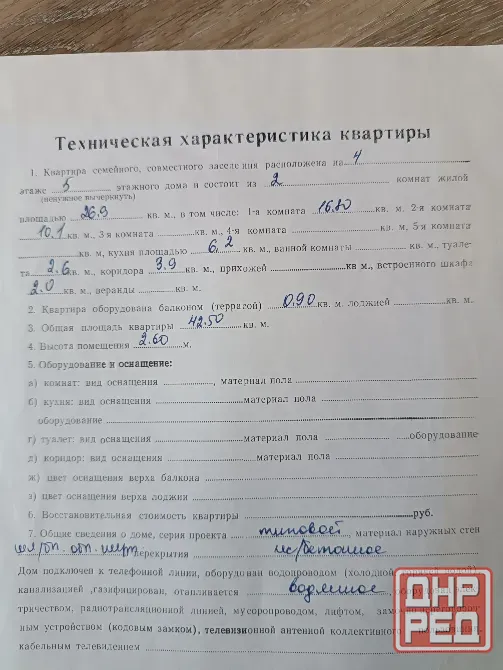 Техническая характеристика квартиры
1. Квартира семейного, совместного заселения расположена на 4
этаже 5 этажного дома и состоит из 2 комнат жилой
(ненужное вычеркнуть)
площадью 26.9 кв. м., в том числе: 1-я комната 16.80 кв. м. 2-я комната
10.1 кв. м., 3-я комната кв. м., 4-я комната кв. м., 5-я комната
кв. м., кухни площадью 6,2 кв. м., ванной комнаты кв. м., туале-
та 2.6 кв. м., коридора 3.9 кв. м., прихожей кв. м., встроенного шкафа
2.0 кв. м., веранды кв. м.
2. Квартира оборудована балконом (террасой) 0.90 кв. м. лоджией кв. м.
3. Общая площадь квартиры 42.50 кв. м.
4. Высота помещения 2.60 м.
5. Оборудование и оснащение:
а) комнат: вид оснащения , материал пола
б) кухни: вид оснащения материал пола
оборудование
г) туалет: вид оснащения материал пола оборудование
д) коридор: вид оснащения материал пола
ж) цвет оснащения верха балкона
з) цвет оснащения верха лоджии
6. Восстановительная стоимость квартиры руб.
7. Общие сведения о доме, серия проекта типовой, материал наружных стен
перекрытия ж/бетонное
Дом подключен к телефонной линии, оборудован водопроводом (холодной
канализацией, газифицирован, отапливается водяное, оборудован
тричеством, радиотрансляционной линией, мусоропроводом, лифтом,
ным устройством (кодовым замком), телевизионной антенной коллективного
кабельным телевидением
ДНР
РЕД